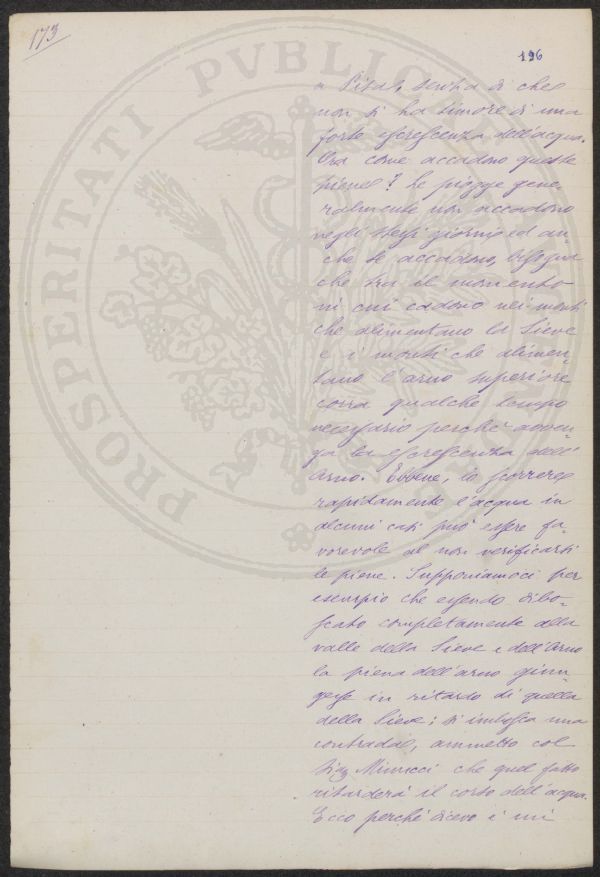 173
196
a Pisa, senza di che
non si ha timore di una
forte escrescenza dell'acqua.
Ora come accadono queste
piene? Le piogge gene-
ralmente non accadono
negli stessi giorni ed an-
che se accadono, bisogna
che tra il momento
in cui cadono nei monti
che alimentano la Sieve
e i monti che alimen-
tano l'arno superiore
corra qualche tempo
necessario perchè avven-
ga la escrescenza dell'
Arno. Ebbene, lo scorrere
rapidamente l'acqua in
alcuni casi può essere fa-
vorevole al non verificarsi
le piene. Supponiamoci per
esempio che essendo disbo-
scato completamente alla
valle della Sieve e dell'Arno
la piena dell'arno giun-
gesse in ritardo di quella
della Sieve; si imbosca una
contrada, ammetto col
Sig Minucci che quel fatto
ritarderà il corso dell'acqua.
Ecco perchè dicevo i mi
PROSPERITATI PVBLICAE